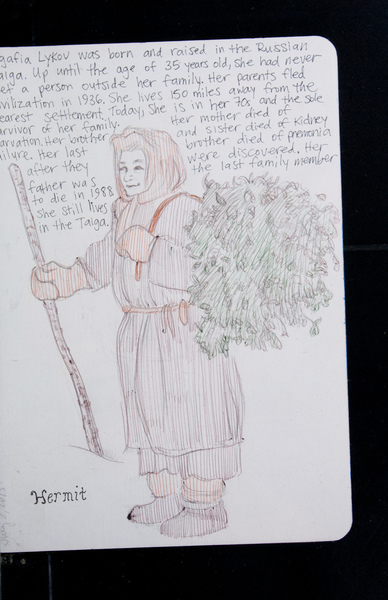 gafia Lykov was born and raised in the Russian
aiga. Up until the age of 35 years old, she had never
et a person outside her family. Her parents fled
ivilization in 1936. She lives 150 miles away from the
earest settlement. Today, she is in her 70s and the sole
urvivor of her family. Her mother died of
arvation. Her brother and sister died of kidney
ailure. Her last brother died of pnemonia
after they were discovered. Her
father was the last family member
to die in 1988
She still lives
in the Taiga.
Hermit